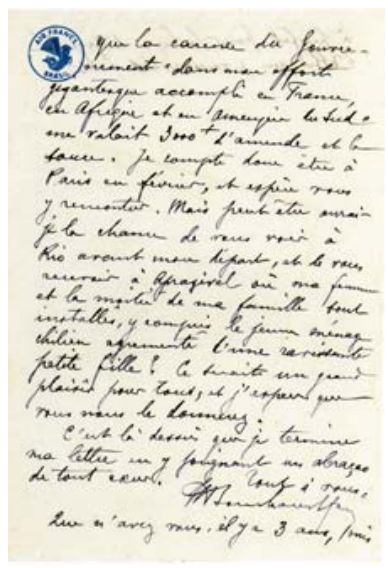 AIR FRANCE
BRASIL
que la carence du Gouver-
nement "dans mon effort
gigantesque accompli en France,
en Afrique et en Amérique du Sud"
me valait 3000 d'amende et la
sauce. Je compte donc être à
Paris en février, et espère vous
y rencontrer. Mais peut être aurai-
je la chance de vous voir à
Rio avant mon départ, et de vous
recevoir à où ma femme
et la moitié de ma famille sont
installés, y compris le jeune ménage
chilien agrémenté d'une ravissante
petite fille? Ce serait un grand
plaisir pour tous, et j'espère que
vous nous le donnerez.
C'est là dessus que je termine
ma lettre en y joignant un abraço
de tout cœur. Tout à vous,
Que n'avez vous, il y a 3 ans, pris